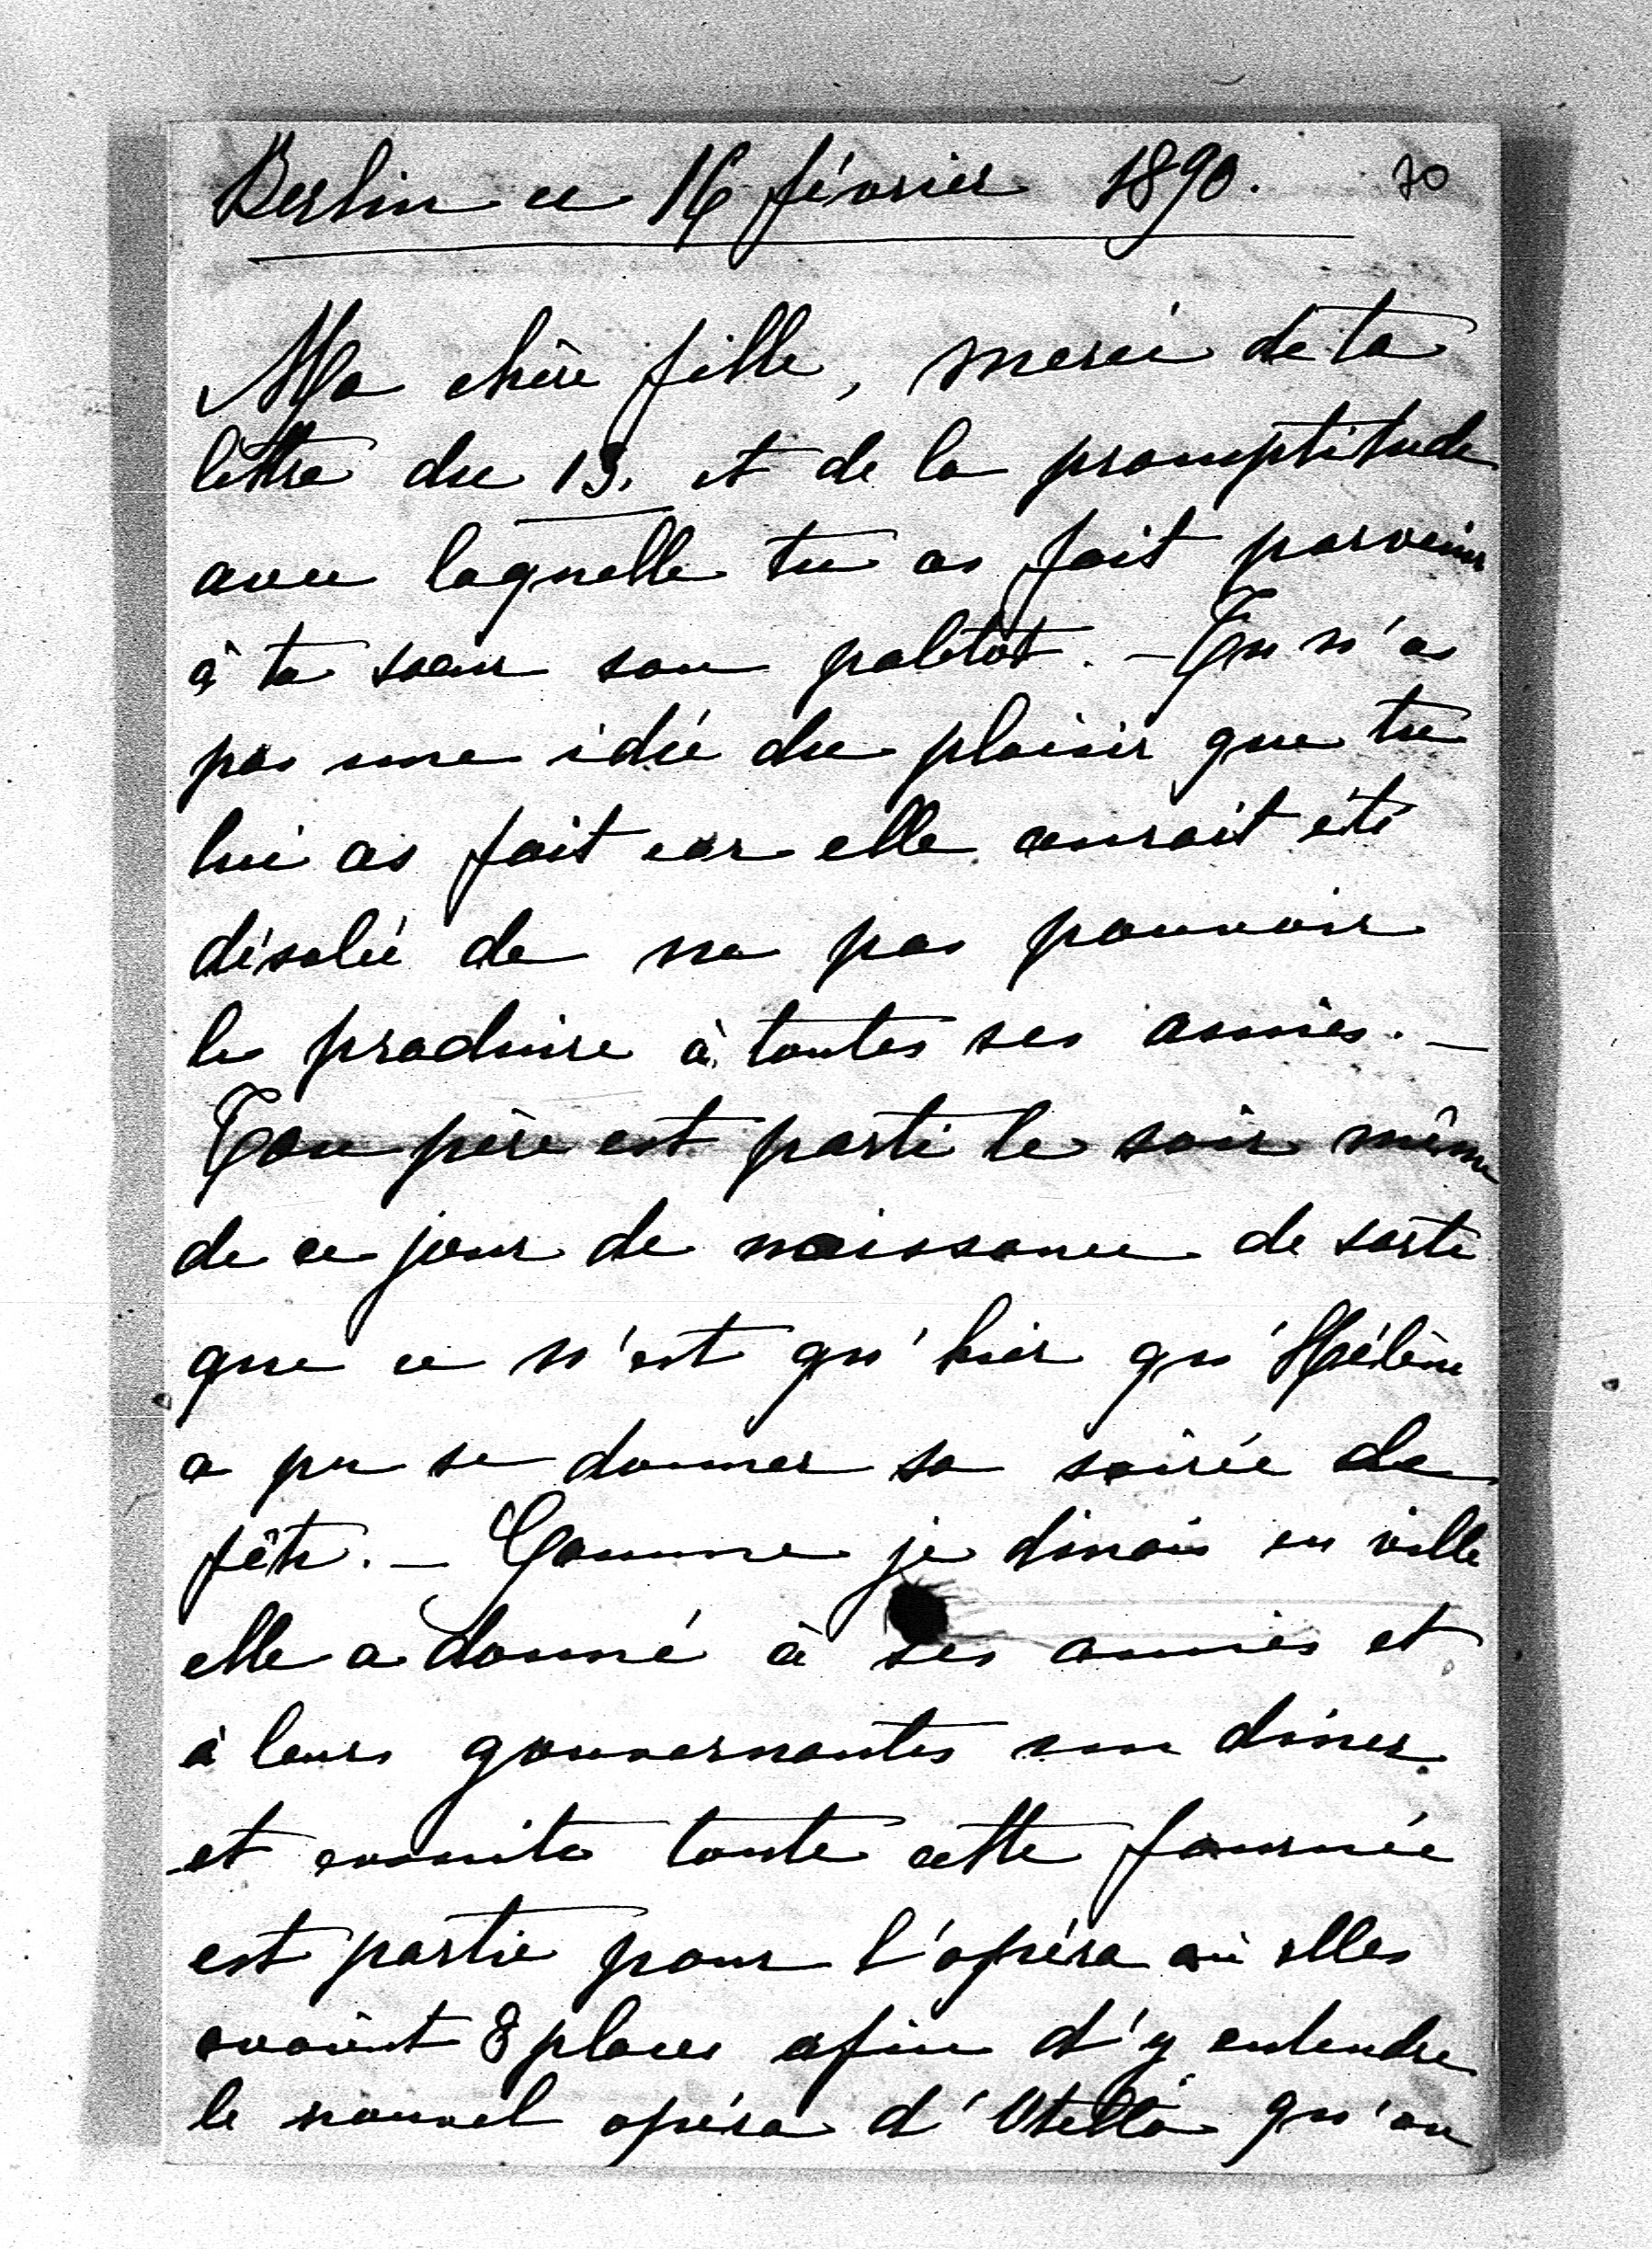 Berlin ce 16 février 1890. 70
Ma chère fille, merci de ta
lettre du 13. et de la promptitude
avec laquelle tu as fait parvenir
à ta soeur son paletôt. – Tu n'as
pas une idée du plaisir que tu
lui as fait car elle aurait été
désolée de ne pas pouvoir
le produire à toutes ses amies. –
Ton père est parti le soir même
de ce jour de naissance de sorte
que ce n'est qu'hier qu'Hélène
a pu se donner sa soirée de
fête. – Comme je dinais en ville
elle a donné à ses amies et
à leurs gouvernantes un diner
et ensuite toute cette fournée
est partie pour l'opéra où elles
avaient 8 places afin d'y entendre
le nouvel opéra d'Otello qu'on